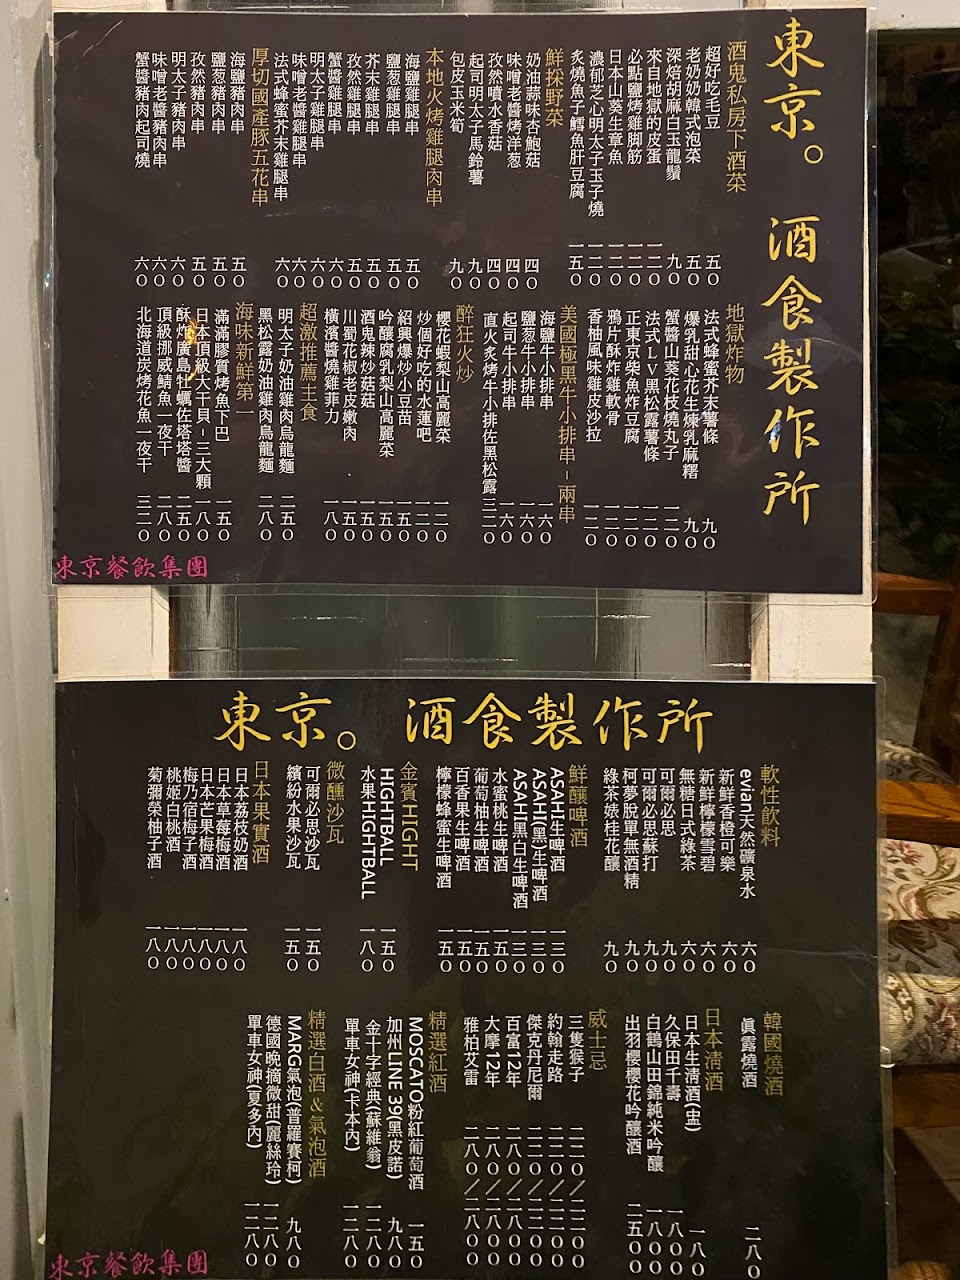 東京。酒食製作所
酒鬼私房下酒菜
超好吃毛豆 五〇
老奶奶韓式泡菜 五〇
深焙胡麻白玉龍鬚 九〇
來自地獄的皮蛋 一二〇
必點鹽烤雞脚筋 一二〇
日本山葵生章魚 一二〇
濃郁芝心明太子玉子燒 一二〇
炙燒魚子鱈魚肝豆腐 一五〇
鮮採野菜
奶油蒜味杏鮑菇 四〇
味噌老醬烤洋葱 四〇
孜然噴水香菇 四〇
起司明太子馬鈴薯 九〇
包皮玉米筍 九〇
本地火烤雞腿肉串
海鹽雞腿串 五〇
鹽葱雞腿串 五〇
芥末雞腿串 五〇
孜然雞腿串 五〇
蟹醬雞腿串 六〇
明太子雞腿串 六〇
味噌老醬雞腿串 六〇
法式蜂蜜芥末雞腿串 六〇
厚切國產豚五花串
海鹽豬肉串 五〇
鹽葱豬肉串 五〇
孜然豬肉串 五〇
明太子豬肉串 六〇
味噌老醬豬肉串 六〇
蟹醬豬肉起司燒 六〇
地獄炸物
法式蜂蜜芥末薯條 九〇
爆乳甜心花生煉乳麻糬 九〇
蟹醬山葵花枝燒丸子 一二〇
法式LV黑松露薯條 一二〇
正東京柴魚炸豆腐 一二〇
鴉片酥炸雞軟骨 一二〇
香柚風味雞皮沙拉 一二〇
美國極黑牛小排串-兩串
海鹽牛小排串 一六〇
鹽葱牛小排串 一六〇
起司牛小排串 一六〇
直火炙烤牛小排佐黑松露 三二〇
醉狂火炒
櫻花蝦梨山高麗菜 一二〇
炒個好吃的水蓮吧 一二〇
紹興爆炒小豆苗 一五〇
吟釀腐乳梨山高麗菜 一五〇
酒鬼辣炒菇菇 一五〇
川蜀花椒老皮嫩肉 一五〇
橫濱醬燒雞菲力 一八〇
超激推薦主食
明太子奶油雞肉烏龍麵 二五〇
黑松露奶油雞肉烏龍麵 二八〇
海味新鮮第一
滿滿膠質烤魚下巴 一五〇
日本頂級大干貝-三大顆 一八〇
酥炸廣島牡蠣佐塔塔醬 二五〇
頂級挪威鯖魚一夜干 二八〇
北海道炭烤花魚一夜干 三二〇
東京餐飲集團
東京。酒食製作所
軟性飲料
evian天然礦泉水 六〇
新鮮香橙可樂 六〇
新鮮檸檬雪碧 六〇
無糖日式綠茶 六〇
可爾必思 九〇
可爾必思蘇打 九〇
柯夢脫單無酒精 九〇
綠茶婊桂花釀 九〇
鮮釀啤酒
ASAHI生啤酒 一三〇
ASAHI(黑)生啤酒 一三〇
ASAHI黑白生啤酒 一三〇
水蜜桃生啤酒 一五〇
葡萄柚生啤酒 一五〇
百香果生啤酒 一五〇
檸檬蜂蜜生啤酒 一五〇
金賓HIGHT
HIGHTBALL 一五〇
水果HIGHTBALL 一八〇
微醺沙瓦
可爾必思沙瓦 一五〇
繽紛水果沙瓦 一五〇
日本果實酒
日本荔枝奶酒 一八〇
日本草莓梅酒 一八〇
日本芒果梅酒 一八〇
梅乃宿梅子酒 一八〇
桃姬白桃酒 一八〇
菊彌榮柚子酒 一八〇
韓國燒酒
眞露燒酒 二八〇
日本淸酒
日本生淸酒(盅) 一八〇
久保田千壽 一八〇〇
白鶴山田錦純米吟釀 一八〇〇
出羽櫻櫻花吟釀酒 二五〇〇
威士忌
三隻猴子 二二〇/二二〇〇
約翰走路 二二〇/二二〇〇
傑克丹尼爾 二二〇/二二〇〇
百富12年 二八〇/二八〇〇
大摩12年 二八〇/二八〇〇
雅柏艾雷 二八〇/二八〇〇
精選紅酒
MOSCATO粉紅葡萄酒 一五〇
加州LINE 39(黑皮諾) 九八〇
金十字經典(蘇維翁) 一二八〇
單車女神(卡本內) 一二八〇
精選白酒&氣泡酒
MARG氣泡(普羅賽柯) 九八〇
德國晚摘微甜(麗絲玲) 一二八〇
單車女神(夏多內) 一二八〇
東京餐飲集團